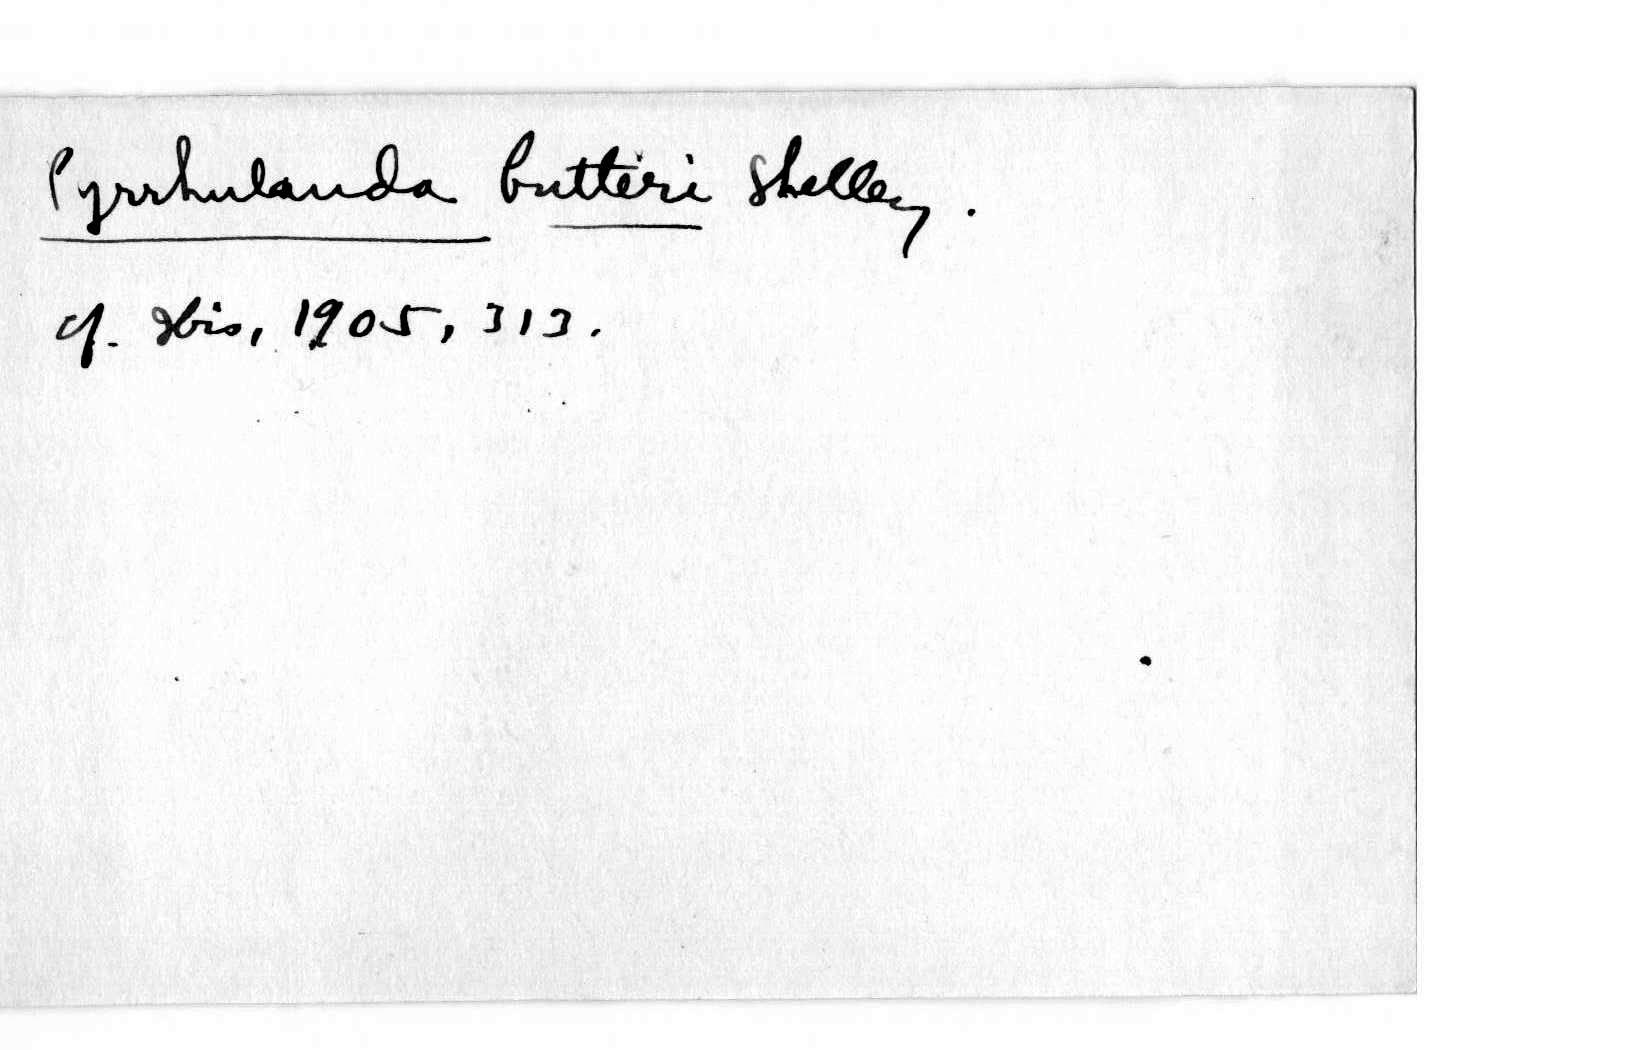 Pyrrhulauda butteri Shelley.
cf. Ibis, 1905, 313.